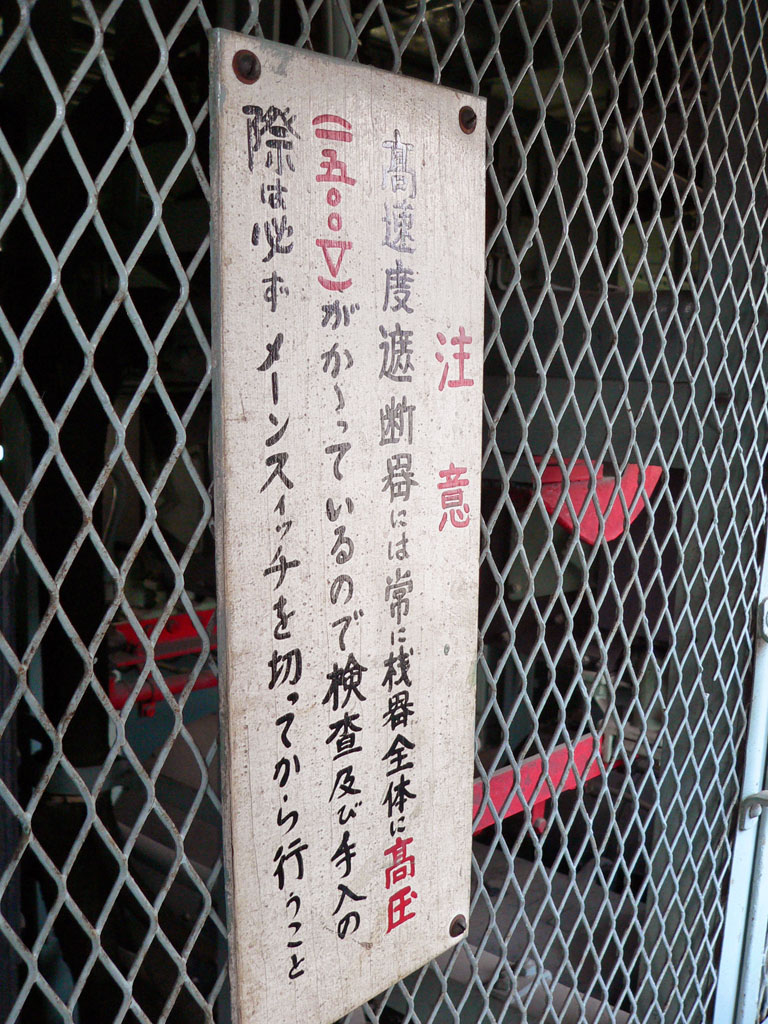 注意
高速度遮断器には常に桟器全体に高圧
(一五〇〇V)がかゝっているので検査及び手入の
際は必ずメーンスィッチを切ってから行うこと